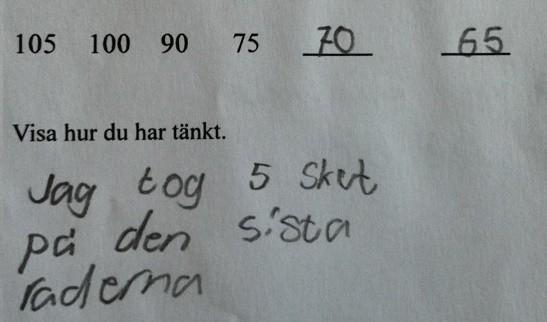 105 100 90 75 70 65
Visa hur du har tänkt.
Jag tog 5 sket
på den sista
raderna